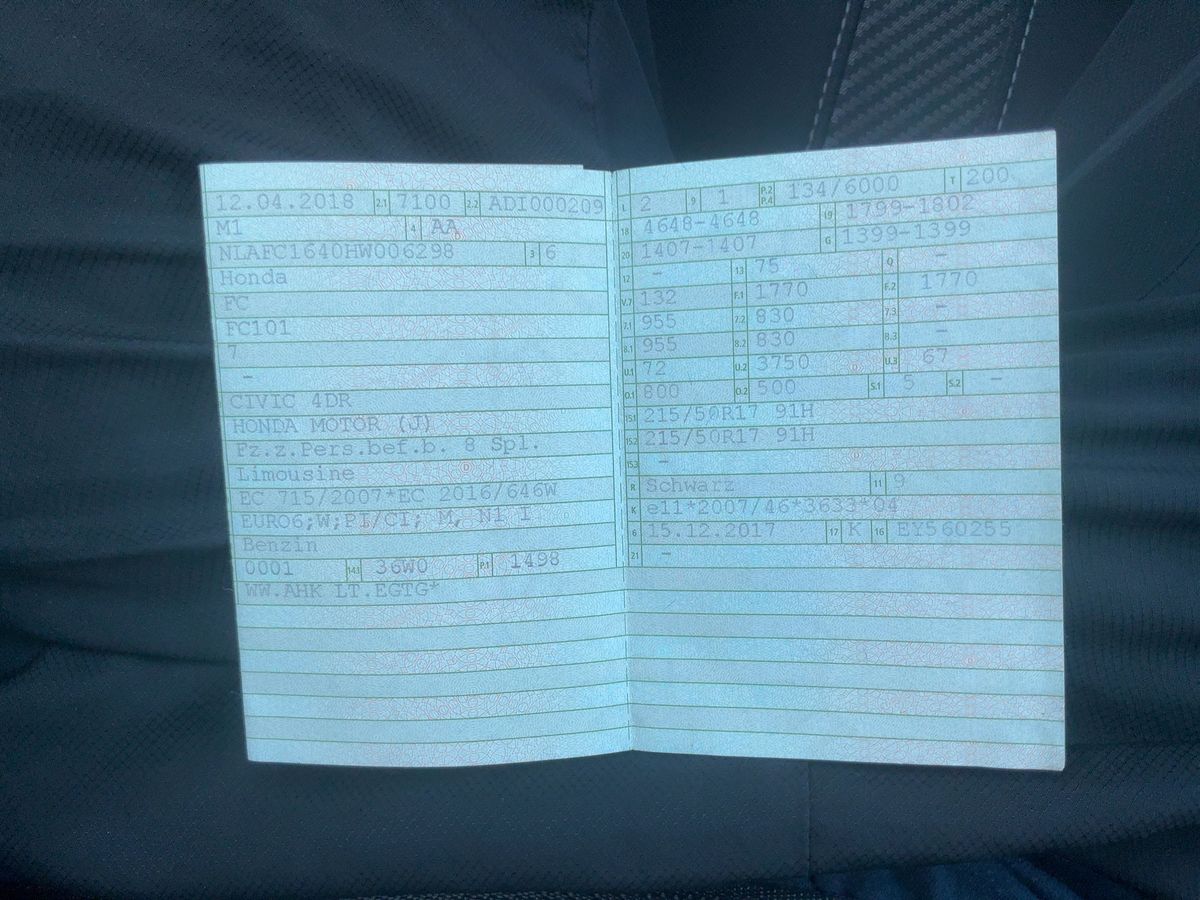 12.04.2018 2.1 7100 2.2 ADI000209
M1 4 AA
NLAFC1640HW006298 3 6
Honda
FC
FC101
7
–
CIVIC 4DR
HONDA MOTOR (J)
Fz.z.Pers.bef.b. 8 Spl.
Limousine
EC 715/2007*EC 2016/646W
EURO6;W;PI/CI; M, N1 I
Benzin
0001 14.1 36W0 P.1 1498
WW.AHK LT.EGTG*
L 2 9 1 P.2 P.4 134/6000 T 200
18 4648-4648 19 1799-1802
20 1407-1407 G 1399-1399
12 – 13 75 Q –
V.7 132 F.1 1770 F.2 1770
7.1 955 7.2 830 7.3 –
8.1 955 8.2 830 8.3 –
U.1 72 U.2 3750 U.3 67
O.1 800 O.2 500 S.1 5 S.2 –
15.1 215/50R17 91H
15.2 215/50R17 91H
15.3 –
R Schwarz 11 9
K e11*2007/46*3633*04
6 15.12.2017 17 K 16 EY560255
21 –